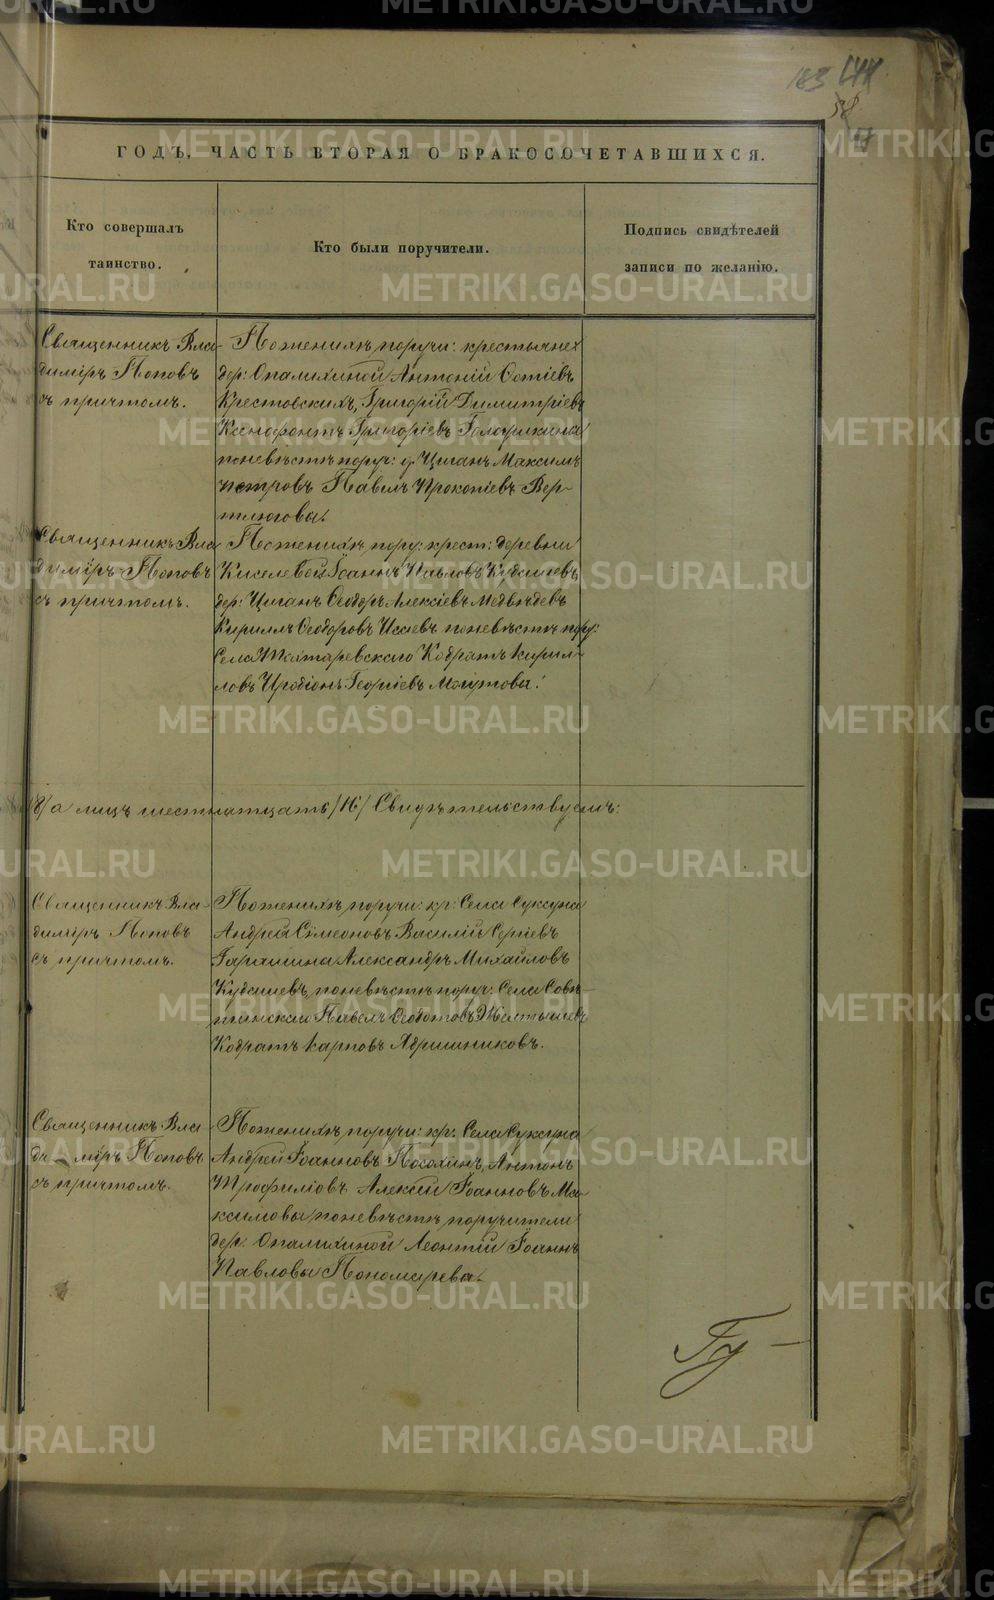 183
58
ГОДЪ, ЧАСТЬ ВТОРАЯ О БРАКОСОЧЕТАВШИХСЯ.
Кто совершалъ
таинство.
Кто были поручители.
Подпись свидѣтелей
записи по желанію.
Священникъ Вла-
димiръ Поповъ
съ причтомъ.
Пожениxѣ поручи: крестьяне
дер: Опалихиной Антонiй Фотiевъ
Крестовскихъ, Григорiй Димитрiевъ
Ксенофонтъ Григорiевъ Голочилкины
поневѣстѣ поруч: д. Циганъ Максимъ
Петровъ Павелъ Прокопiевъ Вер-
тлюговы.
Священникъ Вла
димiръ Поповъ
съ причтомъ.
Поженихѣ пору: крест: деревни
Киселевой Iоаннъ Павловъ Кубышевъ,
дер: Циганъ Ѳеодоръ Алексiевъ Медвѣдевъ
Кириллъ Ѳеодоровъ Исаевъ поневѣстѣ пору:
Села Татаревскаго Кодратъ Кирил-
ловъ Иродiонъ Георгiевъ Могутовы.
/8/ а лицъ шестнатцать /16/ Свидѣтельствуемъ:
Священникъ Вла-
димiръ Поповъ
съ причтомъ.
Поженихѣ поручи: кр: Села Суксуна
Андрей Сѵмеоновъ Василiй Сергiевъ
Гарашина Александръ Михайловъ
Кубышевъ, поневѣстѣ поруч: Села Совѣ-
тинскаго Павелъ Ѳедотовъ Желтышевъ
Кодратъ Карповъ Абришниковъ.
Священникъ Вла-
димiръ Поповъ
съ причтомъ.
Поженихѣ поручи: кр: Села Суксуна
Андрей Iоанновъ Посохинъ, Антонъ
Трофимовъ Алексiй Iоанновъ Ма-
ксимовы поневѣстѣ поручители
дер. Опалихиной Леонтiй Iоаннъ
Павловы Пономарева.
METRIKI.GASO-URAL.RU